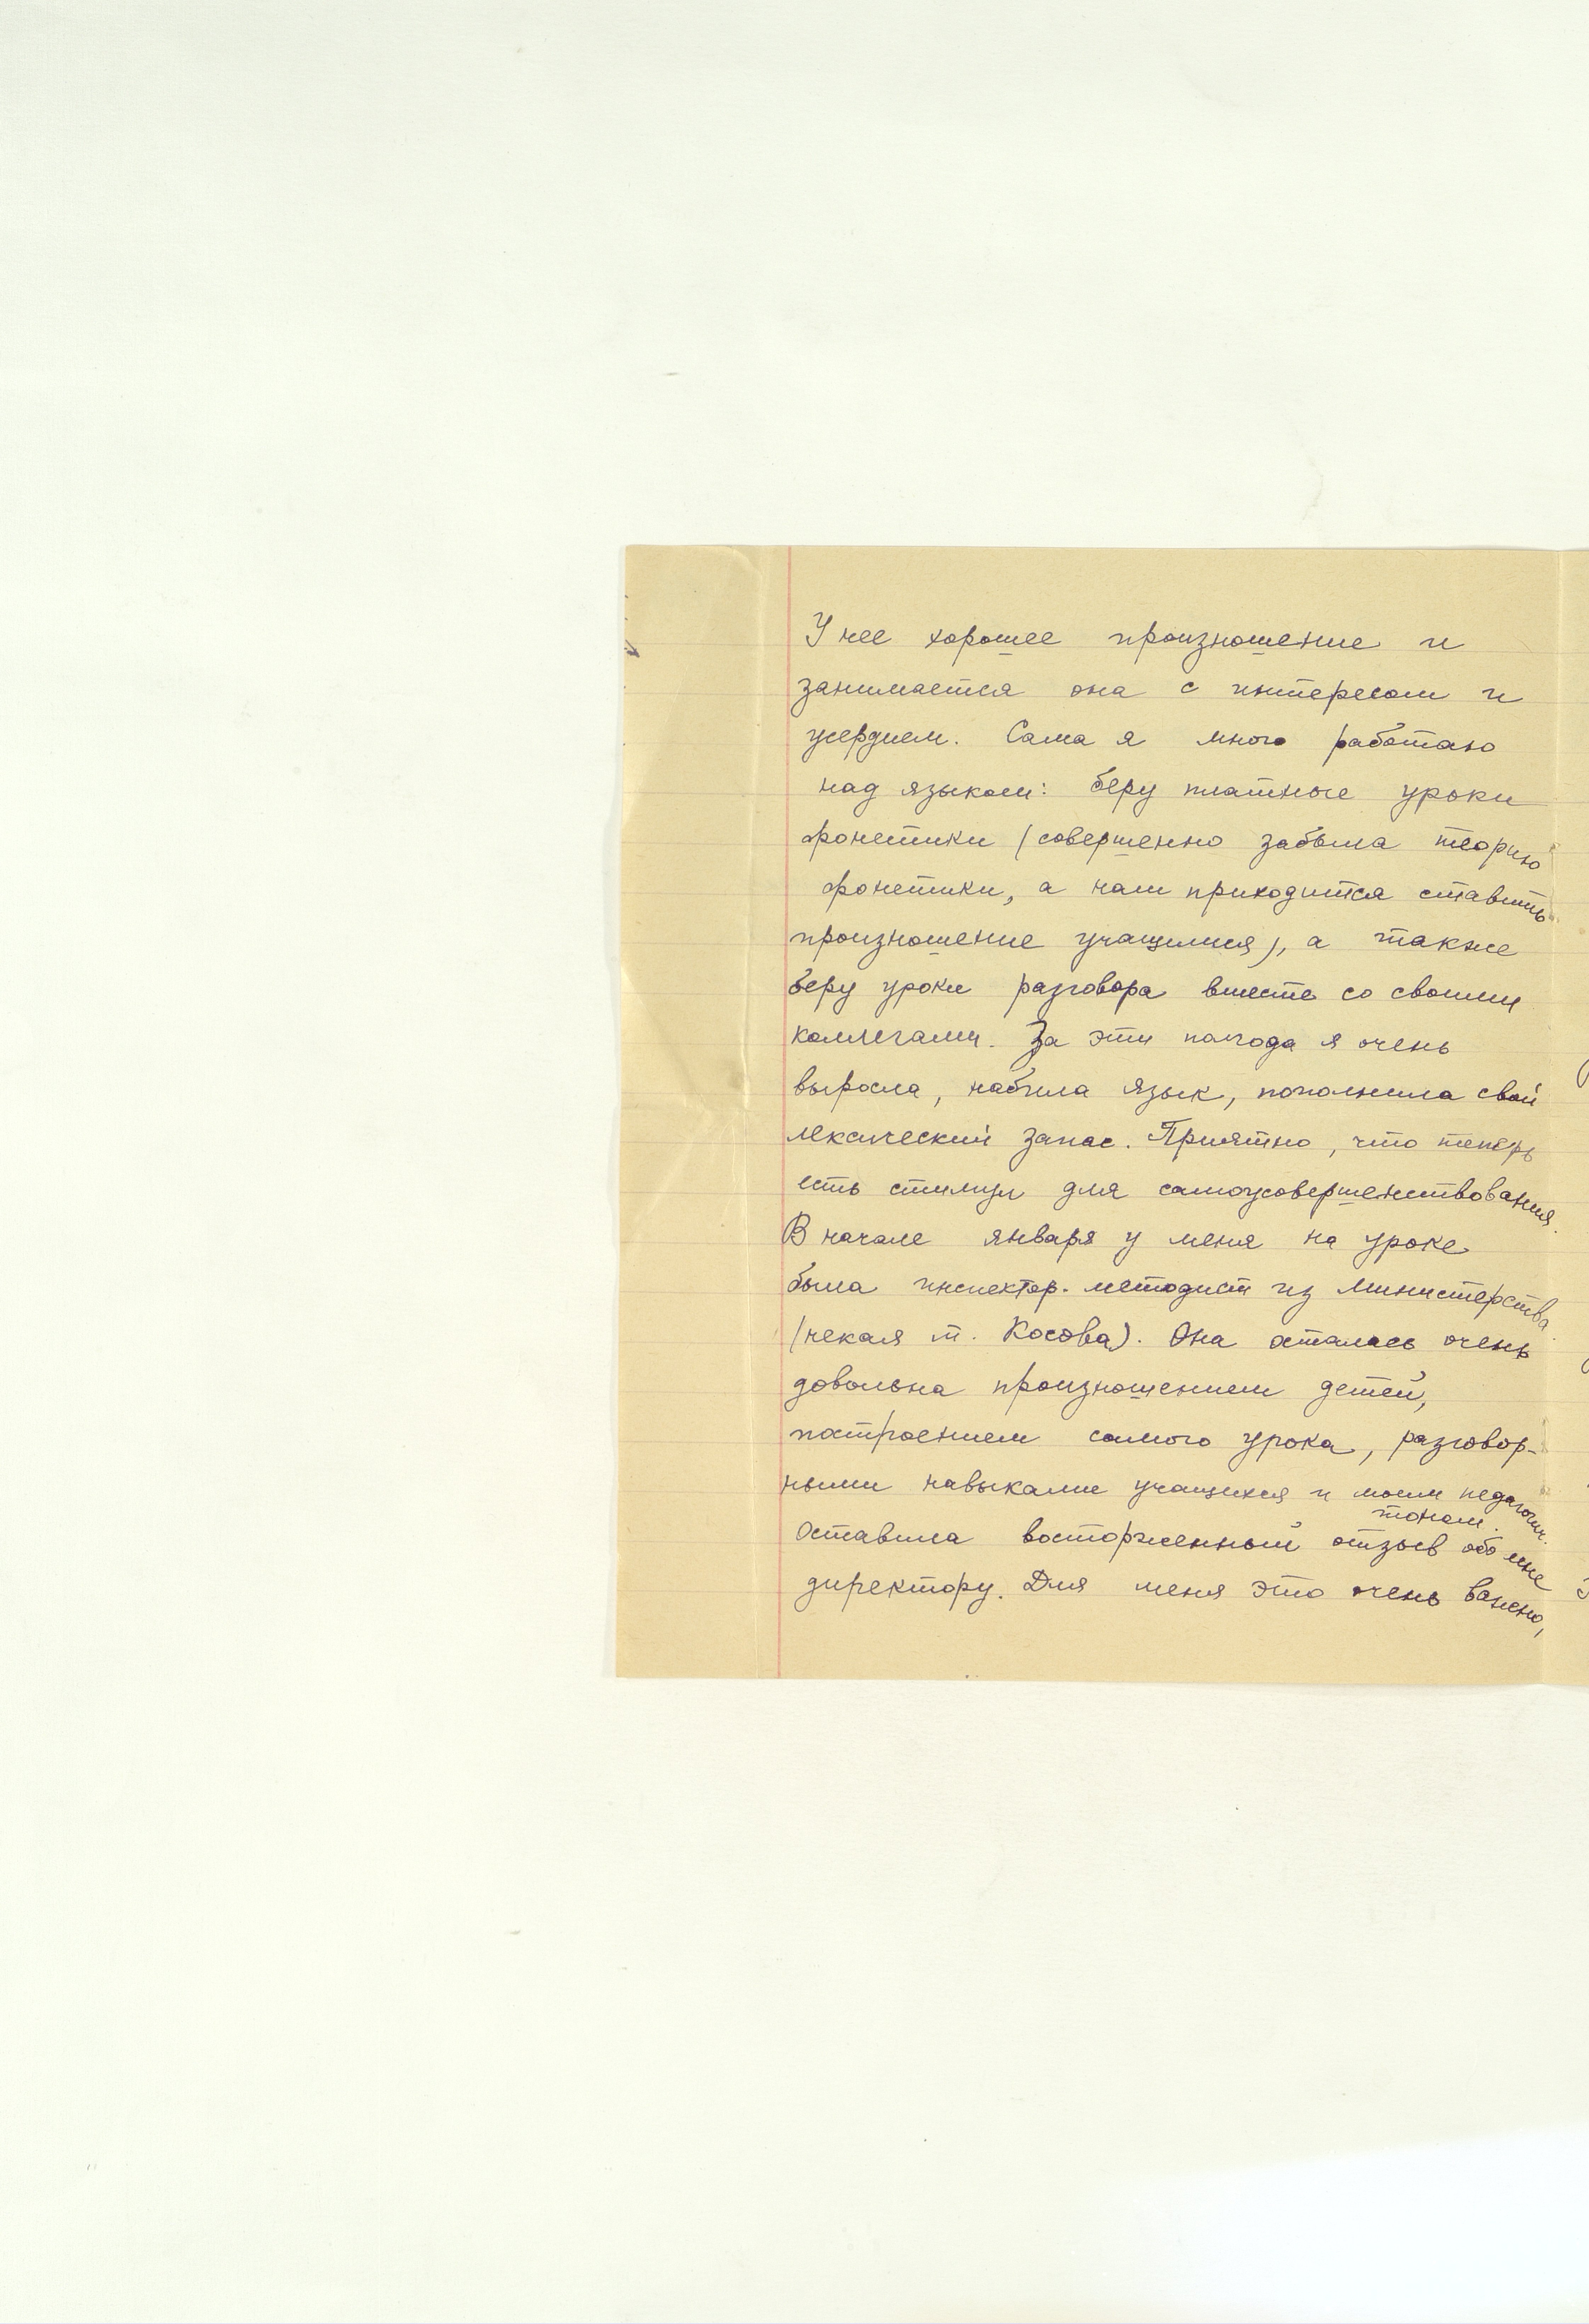 У нее хорошее произношение и
занимается она с интересом и
усердием. Сама я много работаю
над языком: беру платные уроки
фонетики (совершенно забыла теорию
фонетики, а нам приходится ставить
произношение учащимся), а также
беру уроки разговора вместе со своими
коллегами. За эти полгода я очень
выросла, набила язык, пополнила свой
лексический запас. Приятно, что теперь
есть стимул для самоусовершенствования.
В начале января у меня на уроке
была инспектор-методист из Министерства
(некая т. Косова). Она осталась очень
довольна произношением детей,
построением самого урока, разговор-
ными навыками учащихся и моим педагогич.
тоном.
Оставила восторженный отзыв обо мне
директору. Для меня это очень важно,